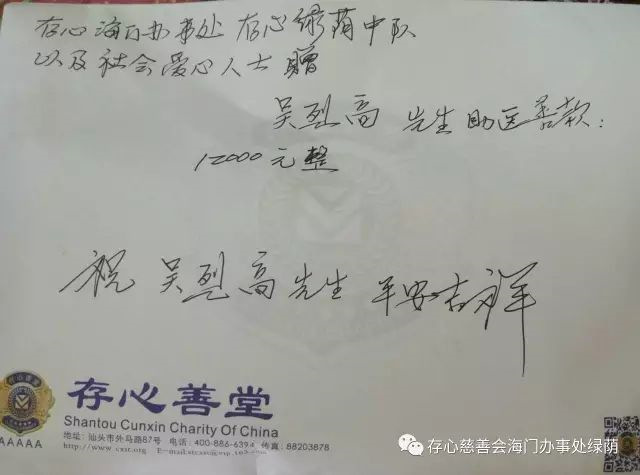 存心海门办事处 存心绿荫中队
以及社会爱心人士赠
吴烈高 先生助医善款:
12000元整
祝 吴烈高先生 平安吉祥
存心善堂
Shantou Cunxin Charity Of China
地址: 汕头市外马路87号 电话: 400-886-6394 传真: 88203878
AAAAA
存心慈善会海门办事处绿荫